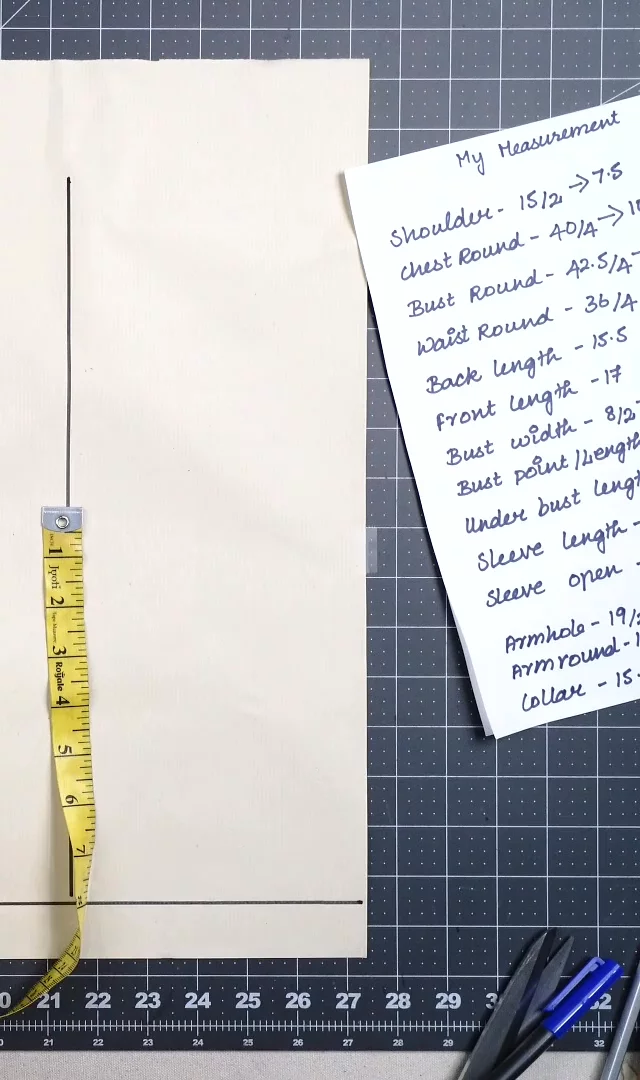 My Measurement
Shoulder - 15/2 → 7.5
Chest Round - 40/4 →
Bust Round - 42.5/4
Waist Round - 36/4
Back length - 15.5
Front length - 17
Bust width - 8/2
Bust point/Length
Under bust lengt
Sleeve length -
Sleeve open -
Armhole - 19/
Armround - 1
Collar - 15.
1
Jyoti
2
3
Royale
4
5
6
7
21 22 23 24 25 26 27 28 29 32
20 21 22 23 24 25 26 27 28 29 32